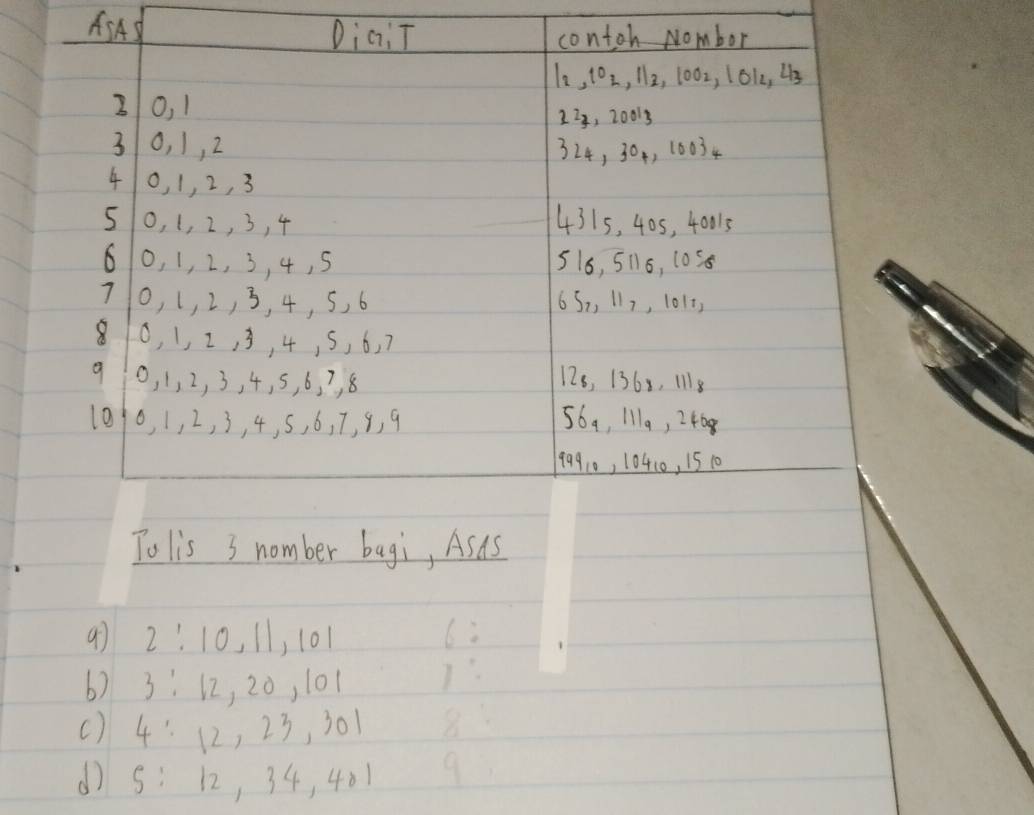 ASAS DiGiT contoh Nombor
1₂, 10₂, 11₂, 100₂, 101₂,
2 0, 1
22₃, 2001₃
3 0, 1, 2
32₄, 30₄, 1003₄
4 0, 1, 2, 3
5 0, 1, 2, 3, 4 431₅, 40₅, 4001₅
6 0, 1, 2, 3, 4, 5 51₆, 511₆, 105₆
7 0, 1, 2, 3, 4, 5, 6 65₇, 11₇, 101₇,
8 0, 1, 2, 3, 4, 5, 6, 7
9 0, 1, 2, 3, 4, 5, 6, 7, 8 12₈, 136₈, 111₈
10 0, 1, 2, 3, 4, 5, 6, 7, 8, 9 56₉, 111₉,
999₁₀, 104₁₀, 15₁₀
Tulis 3 nomber bagi, ASAS
a) 2: 10, 11, 101 6:
b) 3: 12, 20, 101
c) 4: 12, 23, 301 8:
d) 5: 12, 34, 401 9